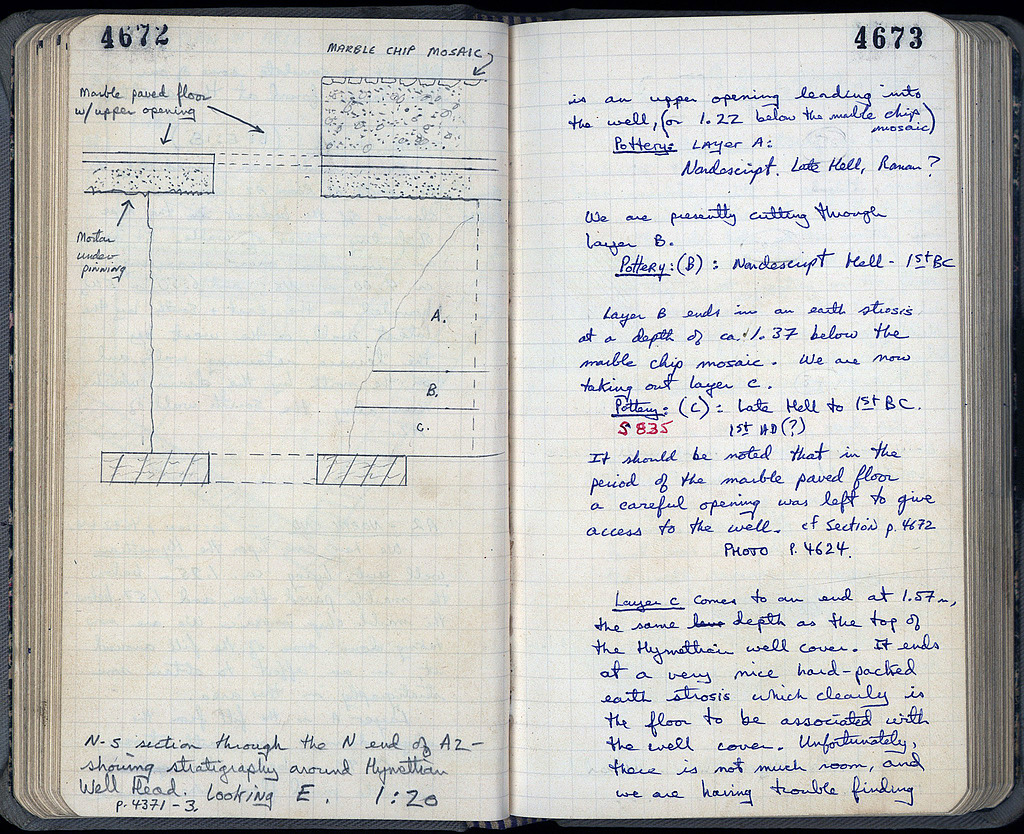 4672
MARBLE CHIP MOSAIC
Marble paved floor
w/upper opening
Mortar
under
pinning
A.
B.
C.
N-S section through the N end of A2 -
showing stratigraphy around Hymettian
Well Head. Looking E. 1:20
p. 4371-3.
4673
is an upper opening leading into
the well, (or 1.22 below the marble chip
mosaic)
Pottery: LAYER A:
Nondescript. Late Hell, Roman?
We are presently cutting through
layer B.
Pottery: (B): Nondescript Hell - 1st BC
Layer B ends in an earth strosis
at a depth of ca. 1.37 below the
marble chip mosaic. We are now
taking out layer C.
Pottery: (C): Late Hell to 1st BC.
S 835 1st AD(?)
It should be noted that in the
period of the marble paved floor
a careful opening was left to give
access to the well. cf Section p. 4672
PHOTO P. 4624.
Layer C comes to an end at 1.57m,
the same depth as the top of
the Hymettian well cover. It ends
at a very nice hard-packed
earth strosis which clearly is
the floor to be associated with
the well cover. Unfortunately,
there is not much room, and
we are having trouble finding